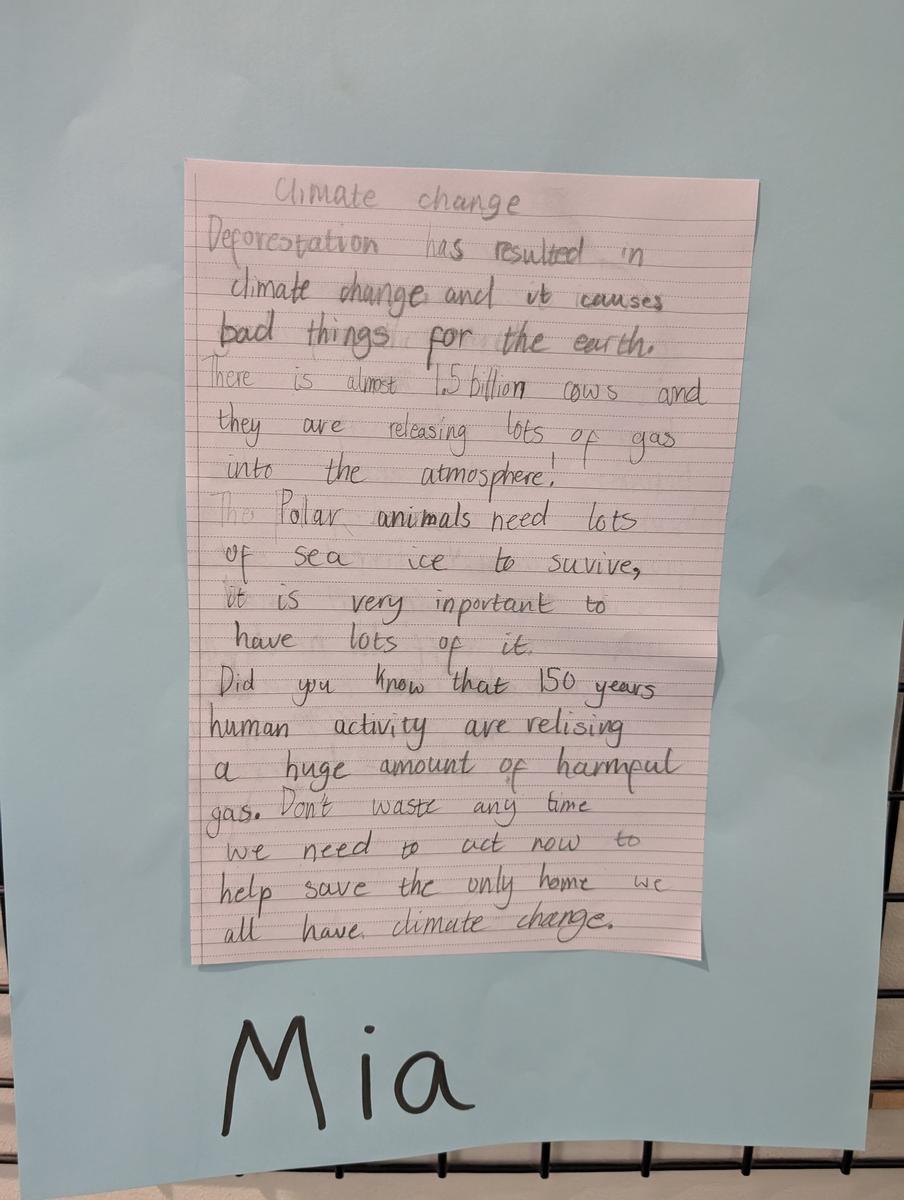 Climate change
Deforestation has resulted in
climate change and it causes
bad things for the earth.
There is almost 1.5 billion cows and
they are releasing lots of gas
into the atmosphere!
The Polar animals need lots
of sea ice to suvive,
it is very inportant to
have lots of it.
Did you know that 150 years
human activity are relising
a huge amount of harmful
gas. Don't waste any time
we need to act now to
help save the only home we
all have. climate change.
Mia